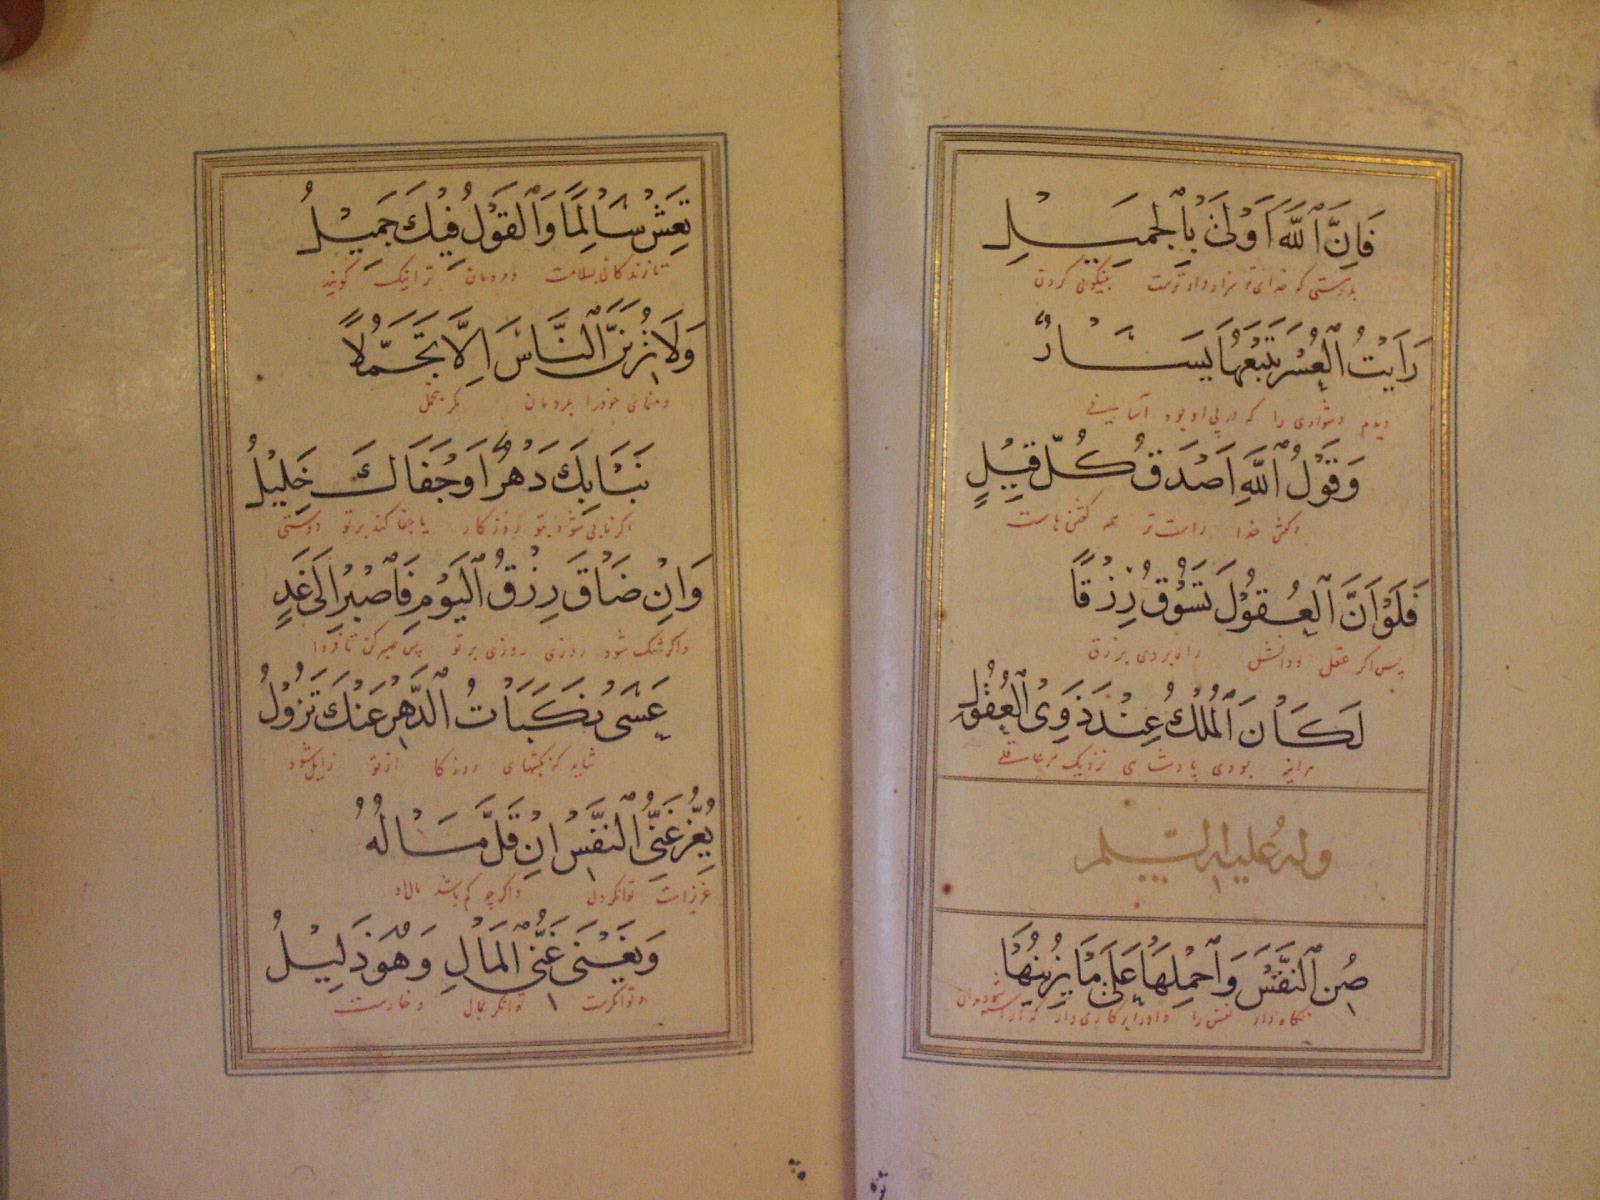 فَاِنَّ ٱللّٰهَ اَوْلٰى بِٱلْجَمِيْلِ
بدرستی که خدای تو سزاوار تر است بنیکوئی کردن
رَاَيْتُ ٱلْعُسْرَ يَتْبَعُهَا يَسَارٌ
دیدم دشواری را که در پی او بود آسانیئی
وَقَوْلُ ٱللّٰهِ اَصْدَقُ كُلِّ قِيْلٍ
و گفتن خدا راست تر همه گفتن هاست
فَلَوْ اَنَّ ٱلْعُقُوْلَ تَسُوْقُ رِزْقًا
پس اگر عقل و دانش راه بردی برزق
لَكَانَ ٱلْمُلْكُ عِنْدَ ذَوِى ٱلْعُقُوْلِ
هراینه بودی پادشاهی نزدیک هر عاقلی
وله عليه السلم
صُنِ ٱلنَّفْسَ وَٱحْمِلْهَا عَلٰى مَا يَزِيْنُهَا
نگاه دار نفس را و او را بر کاری دار که آراسته شود بدان
تَعِشْ سَالِمًا وَٱلْقَوْلُ فِيْكَ جَمِيْلُ
تا زندگانی بسلامت و مردمان ترا نیک گویند
وَلَا تُرِيَنَّ ٱلنَّاسَ اِلَّا تَجَمُّلًا
و منمای خود را بمردمان مگر بتجمل
نَبَا بِكَ دَهْرٌ اَوْ جَفَاكَ خَلِيْلُ
اگر نابی شود بتو روزکار یا جفا کند بر تو دوستی
وَاِنْ ضَاقَ رِزْقُ ٱلْيَوْمِ فَٱصْبِرْ اِلٰى غَدٍ
و اگر تنک شود روزی روزی بر تو پس صبر کن تا فردا
عَسٰى نَكَبَاتُ ٱلدَّهْرِ عَنْكَ تَزُوْلُ
شاید که نکبتهای روزکار از تو زایل شود
يُعَزُّ غَنِىُّ ٱلنَّفْسِ اِنْ قَلَّ مَالُهُ
عزیز است توانکر دل و اگرچه کم باشد مال او
وَيَغْنٰى غَنِىُّ ٱلْمَالِ وَهْوَ ذَلِيْلُ
و توانکرست توانکر بمال و خارست